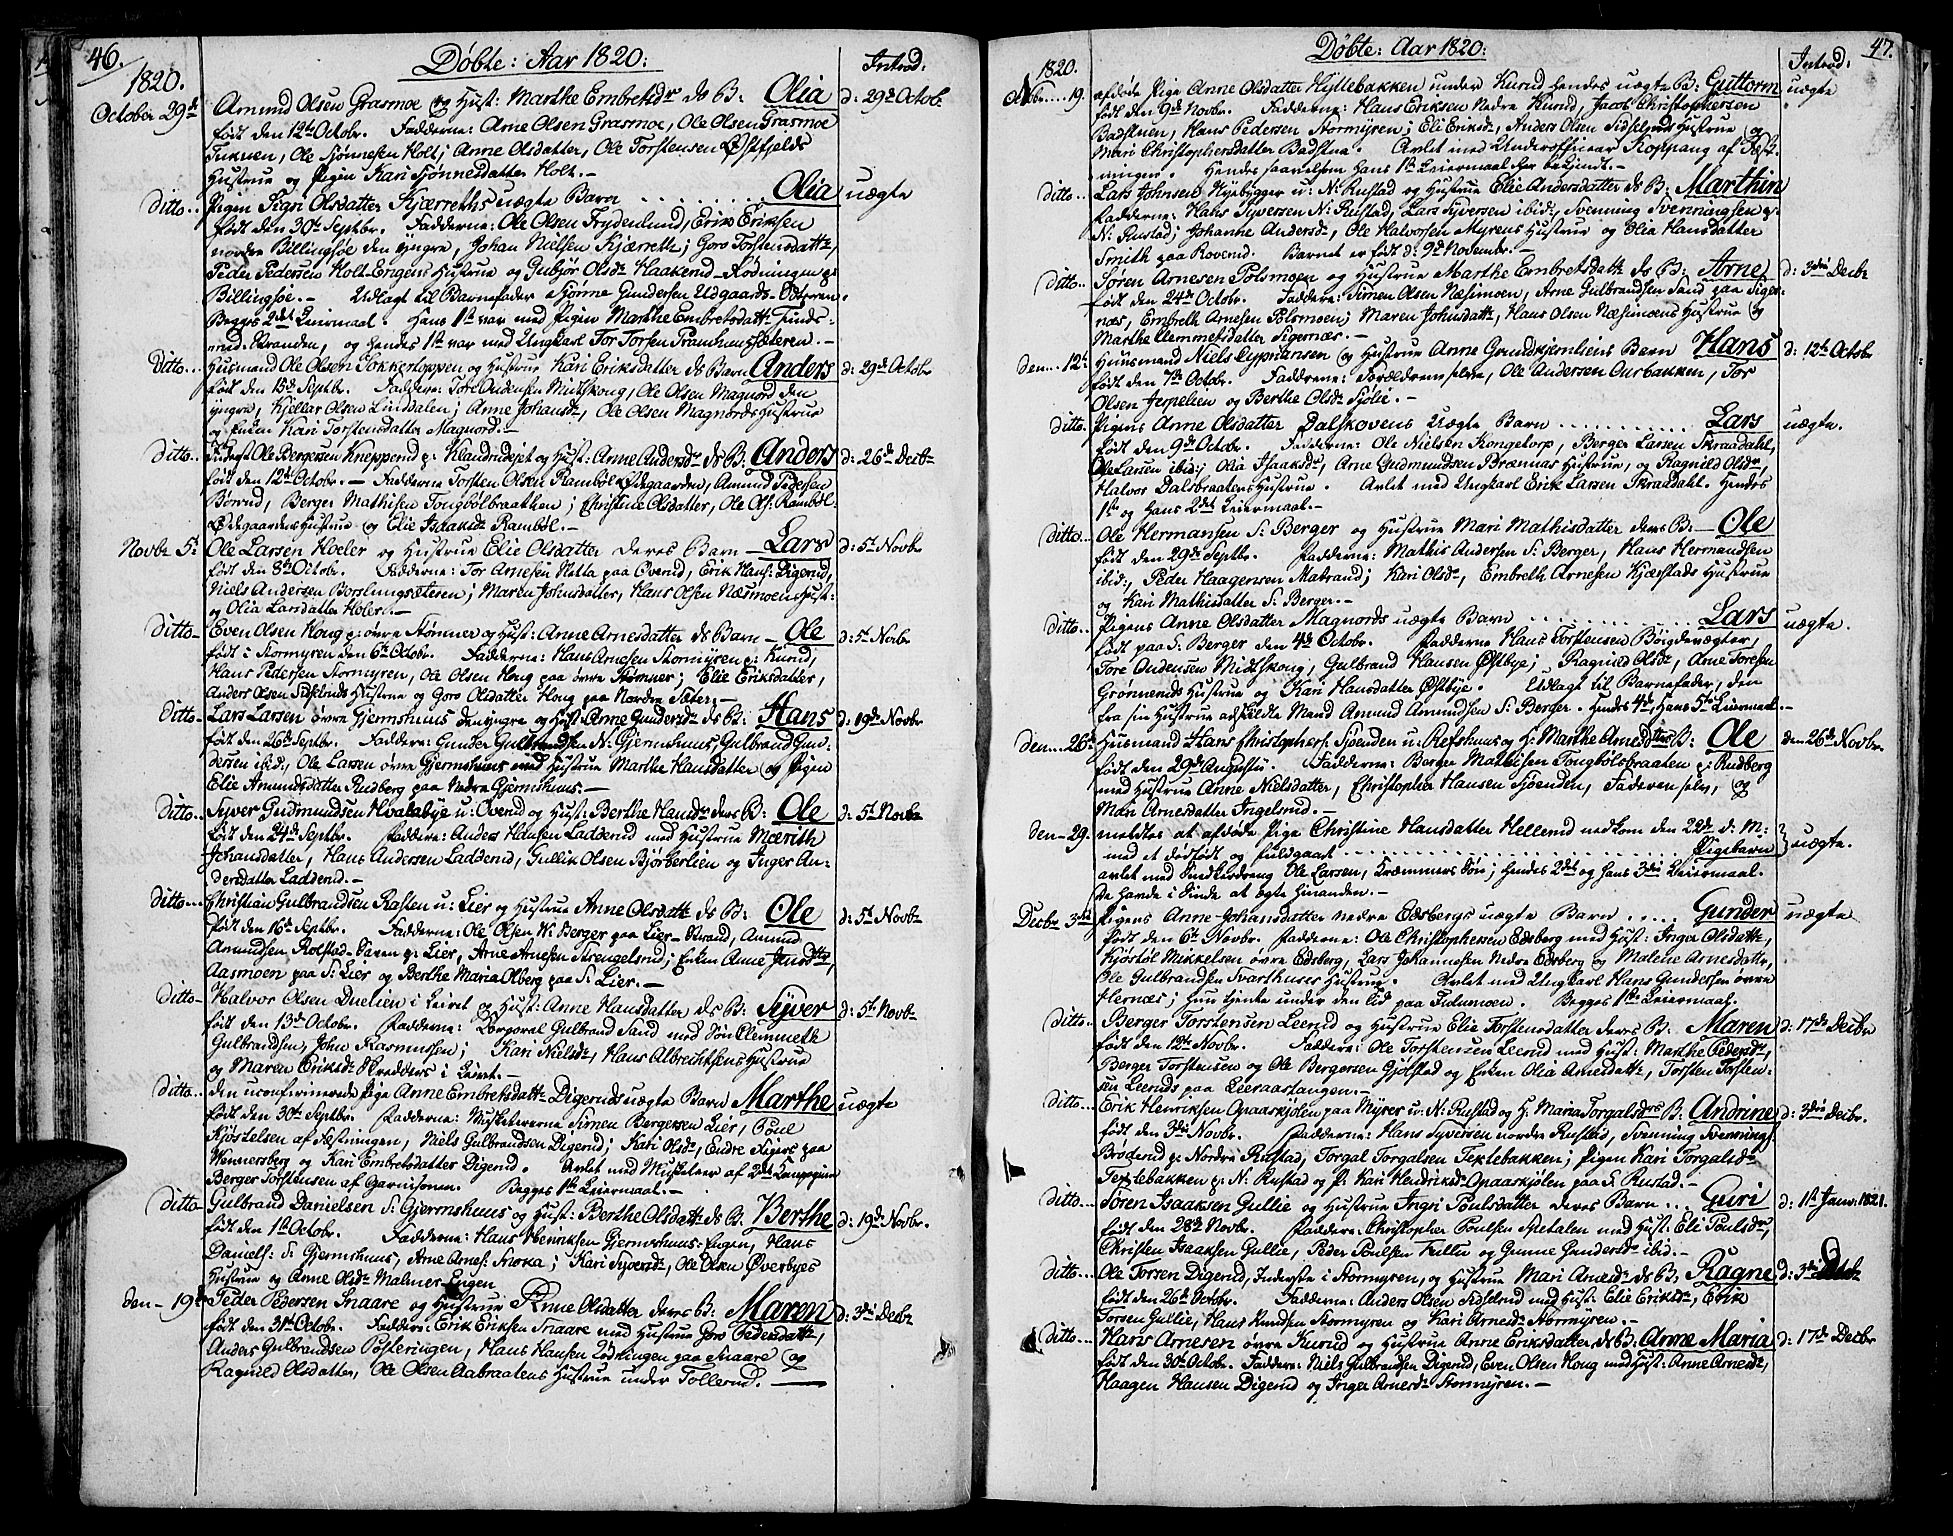 46.
Döbte: Aar 1820:
Introd:
1820.
October 29de Amund Olsen Grasmoe og Hust: Marthe Embretsdr ds B: Olia d: 29de Octobr
født den 12te Octobr. Fadderne: Arne Olsen Grasmoe, Ole Olsen Grasmoe
Tuknen, Ole Sjønnesen Holt; Anne Olsdatter, Ole Torstensen Østfjelds
Hustrue og Pigen Kari Sjønnesdatter Holt.-
Ditto.. Pigen Sigri Olsdatter Kjærreths uægte Barn ....... Olia uægte
født den 30te Septbr. Fadderne: Ole Olsen Frydenlund, Erik Eriksen
nordre Billingsøe den yngre, Johan Nielsen Kjærreth; Goro Torstensdattr,
Peder Pedersen Holt-Engens Hustrue og Gubjør Olsdr Haakerud-Rødningen p:
Billingsøe.- Udlagt til Barnefader Sjønne Gundersen Udgaards-
Begges 2det Leiermaal. Hans 1ste var med Pigen Marthe Embretsdattr Tinds-
rud-Stranden, og hendes 1ste var med Ungkarl Tor Torsen Prammensæteren.-
Ditto... Husmand Ole Olsen Sokkertoppen og Hustrue Kari Eriksdatter ds Barn Anders d: 29de Octobr
født den 13de Septbr. Faddere: Tore Andersen Midtskong, Ole Olsen Magnord den
yngre, Kjeller Olsen Linddalen; Anne Johansdr, Ole Olsen Magnords Hustrue
og Enken Kari Torstensdatter Magnord.-
Ditto... Ole Bergersen Kneppend p: Klaudrudeiet og Hust: Anne Andersdr ds B: Anders d: 26de Decbr
født den 12te Octobr.- Fadderne Torsten Olsen Rambøl Ødegaarden, Amund Pedersen
Børrud, Berger Mathisen Tongbølbraathen; Christine Olsdatter, Ole Ols: Rambøl-
Ødegaardens Hustrue og Elie Isaaksdr Rambøl.-
Novbr 5te Ole Larsen Hoeler og Hustrue Elie Olsdatter deres Barn - Lars d: 5te Novbr
født den 8de Octobr. Fadderne: Tor Arnesen Netta paa Overud, Erik Hans: Digerud,
Niels Andersen Borslungsæteren; Maren Johnsdatter, Hans Olsen Næsmoens Hust-
og Olia Larsdatter Holer.-
Ditto- Even Olsen Houg p: øvre Stømner og Hust: Anne Arnesdatter ds Barn - Ole d: 5te Novbr
født i Stormyren den 6te Octobr. Fadderne: Hans Arnesen Stormyren p: Kurud,
Hans Pedersen Stormyren, Ole Olsen Houg paa øvre Stømner; Elie Eriksdatter,
Anders Olsen Sidselruds Hustrue og Goro Olsdatter Houg paa Nordre Sæter.-
Ditto- Lars Larsen øvre Gjermshuus den yngre og Hust: Anne Gundersdr ds B: Hans d: 19de Novbr
født den 26de Septbr. Faddere: Gunder Gulbrandsen N: Gjermshuus, Gulbrand Gun-
dersen ibid:, Ole Larsen øvre Gjermshuus med Hustrue Marthe Hansdatter og Pigen
Elie Amundsdatter Rudberg paa Nedre Gjermshuus.-
Ditto... Syver Gudmundsen Hvalebye u: Overud og Hust: Berthe Hansdr deres B: Ole d: 5te Novbr
født den 24de Septbr. Faddere: Anders Hansen Ladderud med Hustrue Mærith
Johansdatter, Hans Andersen Ladderud, Gullik Olsen Bjørberlien og Inger An-
dersdatter Ladderud.-
Ditto... Christian Gulbrandsen Rasten u: Lier og Hustrue Anne Olsdattr ds B: Ole d: 5te Novbr
født den 16de Septbr. Fadderne: Ole Olsen W: Berger paa Lier-Strand, Amund
Amundsen Rolstad-Pigen p: Lier, Arne Arnesen Strengelsrud; Enken Anne Jensdttr
Aasmoen paa S: Lier og Berthe Maria Olberg paa S: Lier.-
Ditto- Halvor Olsen Duelien i Leiret og Hust: Anne Hansdatter ds B: Syver d: 5te Novbr
født den 13de Octobr. Fadderne: Corporal Gulbrand Sand med Søn Clemmeth
Gulbrandsen, John Rasmussen; Kari Nielsdr, Hans Albrechtsens Hustrue
og Maren Eriksdr Skredders i Leiret.-
Ditto... den uconfirmerede Pige Anne Embretsdattr Digeruds uægte Barn Marthe uægte
født den 30te Septbr. Fadderne: Musketererne Simen Bergersen Lier, Poul
Kjøstelsen af Festningen, Niels Gulbrandsen Digerud; Kari Olsdr, Endre Sigers paa
Wennersberg og Kari Embretsdatter Digerud. Avlet med Musketeer af 2det Compagnie
Berger Torstensen af Garnisonen. Begges 1ste Leiermaal.-
Ditto- Gulbrand Danielsen S: Gjermshuus og Hust: Berthe Olsdattr ds B: Berthe d: 19de Novbr.
født den 1ste Octobr. Fadderne: Hans Henriksen Gjermshuus-Eigen, Hans
Daniels: S: Gjermshuus, Arne Arnes: Snoxa; Kari Syversdr, Ole Olsen Øverbyes
Hustrue og Anne Olsdr Malmer-Engen
den - 19de Peder Pedersen Snaare og Hustrue Anne Olsdatter deres B: Maren d: 3die Decbr
født den 31te Octobr. Faddere: Erik Eriksen Snaare med Hustrue Goro Pedersdattr,
Anders Gulbrandsen Posteringen, Hans Hansen Lødningen paa Snaare og
Ragnild Olsdatter, Ole Olsen Aabraatens Hustrue under Tollerud.
47.
Döbte: Aar 1820:
Introd:
1820.
Octbr.... 19. afløde Pige Anne Olsdatter Hyttebakken under Kurud hendes uægte B: Guttorm uægte
født den 9de Novbr. Fadderne: Hans Eriksen Nedre Kurud, Jacob Christophersen
Badstuen, Hans Pedersen Stormyren; Eli Eriksdr, Anders Olsen Sidselruds Hustrue og
Mari Christophersdatter Badstua. Avlet med Underofficeer Koppang af Fæst-
ningen. Hendes saavelsom Hans 1ste Leiermaal efter bekjendt.-
Ditto... Lars Johnsen Nyebygger u: N: Rustad og Hustrue Elie Andersdatter ds B: Marthin
Fadderne: Hans Syversen N: Rustad, Lars Syversen ibid:, Svenning Svenningsen p:
N: Rustad; Johanne Andersdr, Ole Halvorsen Myrens Hustrue og Olia Hansdatter
Smith paa Roverud. Barnet er født d: 9de Novembr.-
Ditto... Søren Arnesen Polsmoen og Hustrue Marthe Embretsdattr ds B: Arne d: 3die Decbr
født den 24de Octobr. Faddere: Simen Olsen Næsimoen, Arne Gulbrandsen Sand paa Siger-
næs, Embreth Arnesen Polsmoen; Maren Johnsdattr, Hans Olsen Næsimoens Hustrue og
Marthe Clemmetsdatter Sigernæs.-
den... 12te Huusmand Niels Cypriansen og Hustrue Anne Grundkjernliens Barn Hans d: 12te Octobr
født den 7de Octobr. Fadderne: Forældrene selve, Ole Andersen Aurbakken, Tor
Olsen Jerpelien og Berthe Olsdr Sjølie.-
Ditto.. Pigens Anne Olsdatter Dalskovens Uægte Barn ........... Lars uægte.
født den 9de Octobr. Fadderne: Ole Nielsen Kongetorp, Berger Larsen Skraadahl,
Ole Larsen ibid:; Olia Isaaksdr, Arne Gudmundsen Brænnas Hustrue, og Ragnild Olsdr,
Halvor Dalsbraatens Hustrue. Avlet med Ungkarl Erik Larsen Skraadahl. Hendes
1ste og Hans 2det Leiermaal.-
Ditto... Ole Hermansen S: Berger og Hustrue Mari Mathisdatter deres B: - Ole
født den 29de Septbr. Fadderne: Mathis Andersen S: Berger, Hans Hermandsen
ibid:, Peder Haagensen Matrand; Kari Olsdr, Embreth Arnesen Kjærstads Hustrue
og Kari Mathisdatter S: Berger.-
Ditto... Pigens Anne Olsdatter Magnords uægte Barn ........... Lars uægte.
født paa S: Berger den 4de Octobr. Fadderne Hans Torstensen Bøigdevægter,
Tore Andersen Midtskong, Gulbrand Hansen Østbye; Ragnild Olsdr, Arne Toresen
Grønneruds Hustrue og Kari Hansdatter Østbye. Udlagt til Barnefader, den
fra sin Hustrue adskildte Mand Amund Amundsen S: Berger. Hendes 4de, Hans 5te Leiermaal.-
den... 26de Husmand Hans Christophers: Sjøenden u: Refshuus og H: Marthe Arnesdttr B: Ole den 26de Novbr.
født den 29de Augusti. Fadderne: Berger Mathisen Tongbølsbraaten p: Rudberg
med Hustrue Anne Nielsdatter, Christopher Hansen Sjøenden, Faderen selv, og
Mari Arnesdatter Ingelsrud.-
den-29. meldtes at afløde Pige Christine Hansdatter Hellerud nedkom den 22de d: M:
med et dødfødt og fuldgaaet ............ Pigebarn uægte.
avlet med Ole Larsen, Kræmmers Søn; Hendes 2det og hans 3die Leiermaal.
De havde i Sinde at ægte hinanden.-
Decbr 3die Pigens Anne Johansdatter nedre Edsbergs uægte Barn ..... Gunder uægte
født den 6te Novbr. Fadderne: Ole Christophersen Edsberg med Hust: Inger Olsdattr,
Kjøstøl Mikkelsen øvre Edsberg, Lars Johannesen Nedre Edsberg og Malene Arnesdattr,
Ole Gulbrandsen Svarthuses Hustrue. Avlet med Ungkarl Hans Gundersen øvre
Hernæs; hun tjente under den Tid paa Tulumoen. Begges 1ste Leiermaal.
Ditto... Berger Torstensen Leerud og Hustrue Elie Torstensdatter deres B. Maren d: 17de Decbr
født den 12te Novbr. Faddere: Ole Torstensen Leerud med Hust: Marthe Pedersdr,
Berger Torstensen og Ole Bergersen Gjølstad og Enken Olia Arnesdattr, Torsten Torsten-
sen Leeruds paa Leeraastangen.-
Ditto... Erik Henriksen Opaaskjølen paa Myrer u: N: Rustad og H: Maria Torgalsdtrs B. Andrine d: 3die Decbr.
født den 3die Novbr. Fadderne: Hans Syversen nordre Rustad, Svenning Svennings:
Brøderud p: Nordre Rustad, Torgal Torgalsen Textebakken; Pigen Kari Torgalsdr
Textebakken p: N: Rustad og P: Kari Hendriksdr Opaaskjølen paa S: Rustad.-
Ditto... Søren Isaaksen Gullie og Hustrue Ingri Poulsdatter deres Barn .. Guri d: 1ste Janv: 1821.
født den 28de Novbr. Faddere: Christopher Poulsen Spetalen med Hust: Eli Poulsdr,
Christen Isaaksen Gullie, Peder Poulsen Tellie og Gunne Gundersdr ibid:-
Ditto... Ole Torsen Digerud, Inderste i Stormyren, og Hustrue Mari Arnesdr ds B: Ragne d: 3die Decbr
født den 26de Octobr. Faddere: Anders Olsen Sidselrud med Hust: Elie Eriksdr, Erik
Torsen Gullie, Hans Knudsen Stormyren og Kari Arnesdr Stormyren.-
Ditto... Hans Arnesen øvre Kurud og Hustrue Anne Eriksdatter ds B: Anne Maria d: 17de Decbr
født den 30te Octobr. Faddere: Niels Gulbrandsen Digerud, Even Olsen Houg med Hust: Anne Arnesdr,
Haagen Hansen Digerud og Inger Arnesdr Stormyren.-